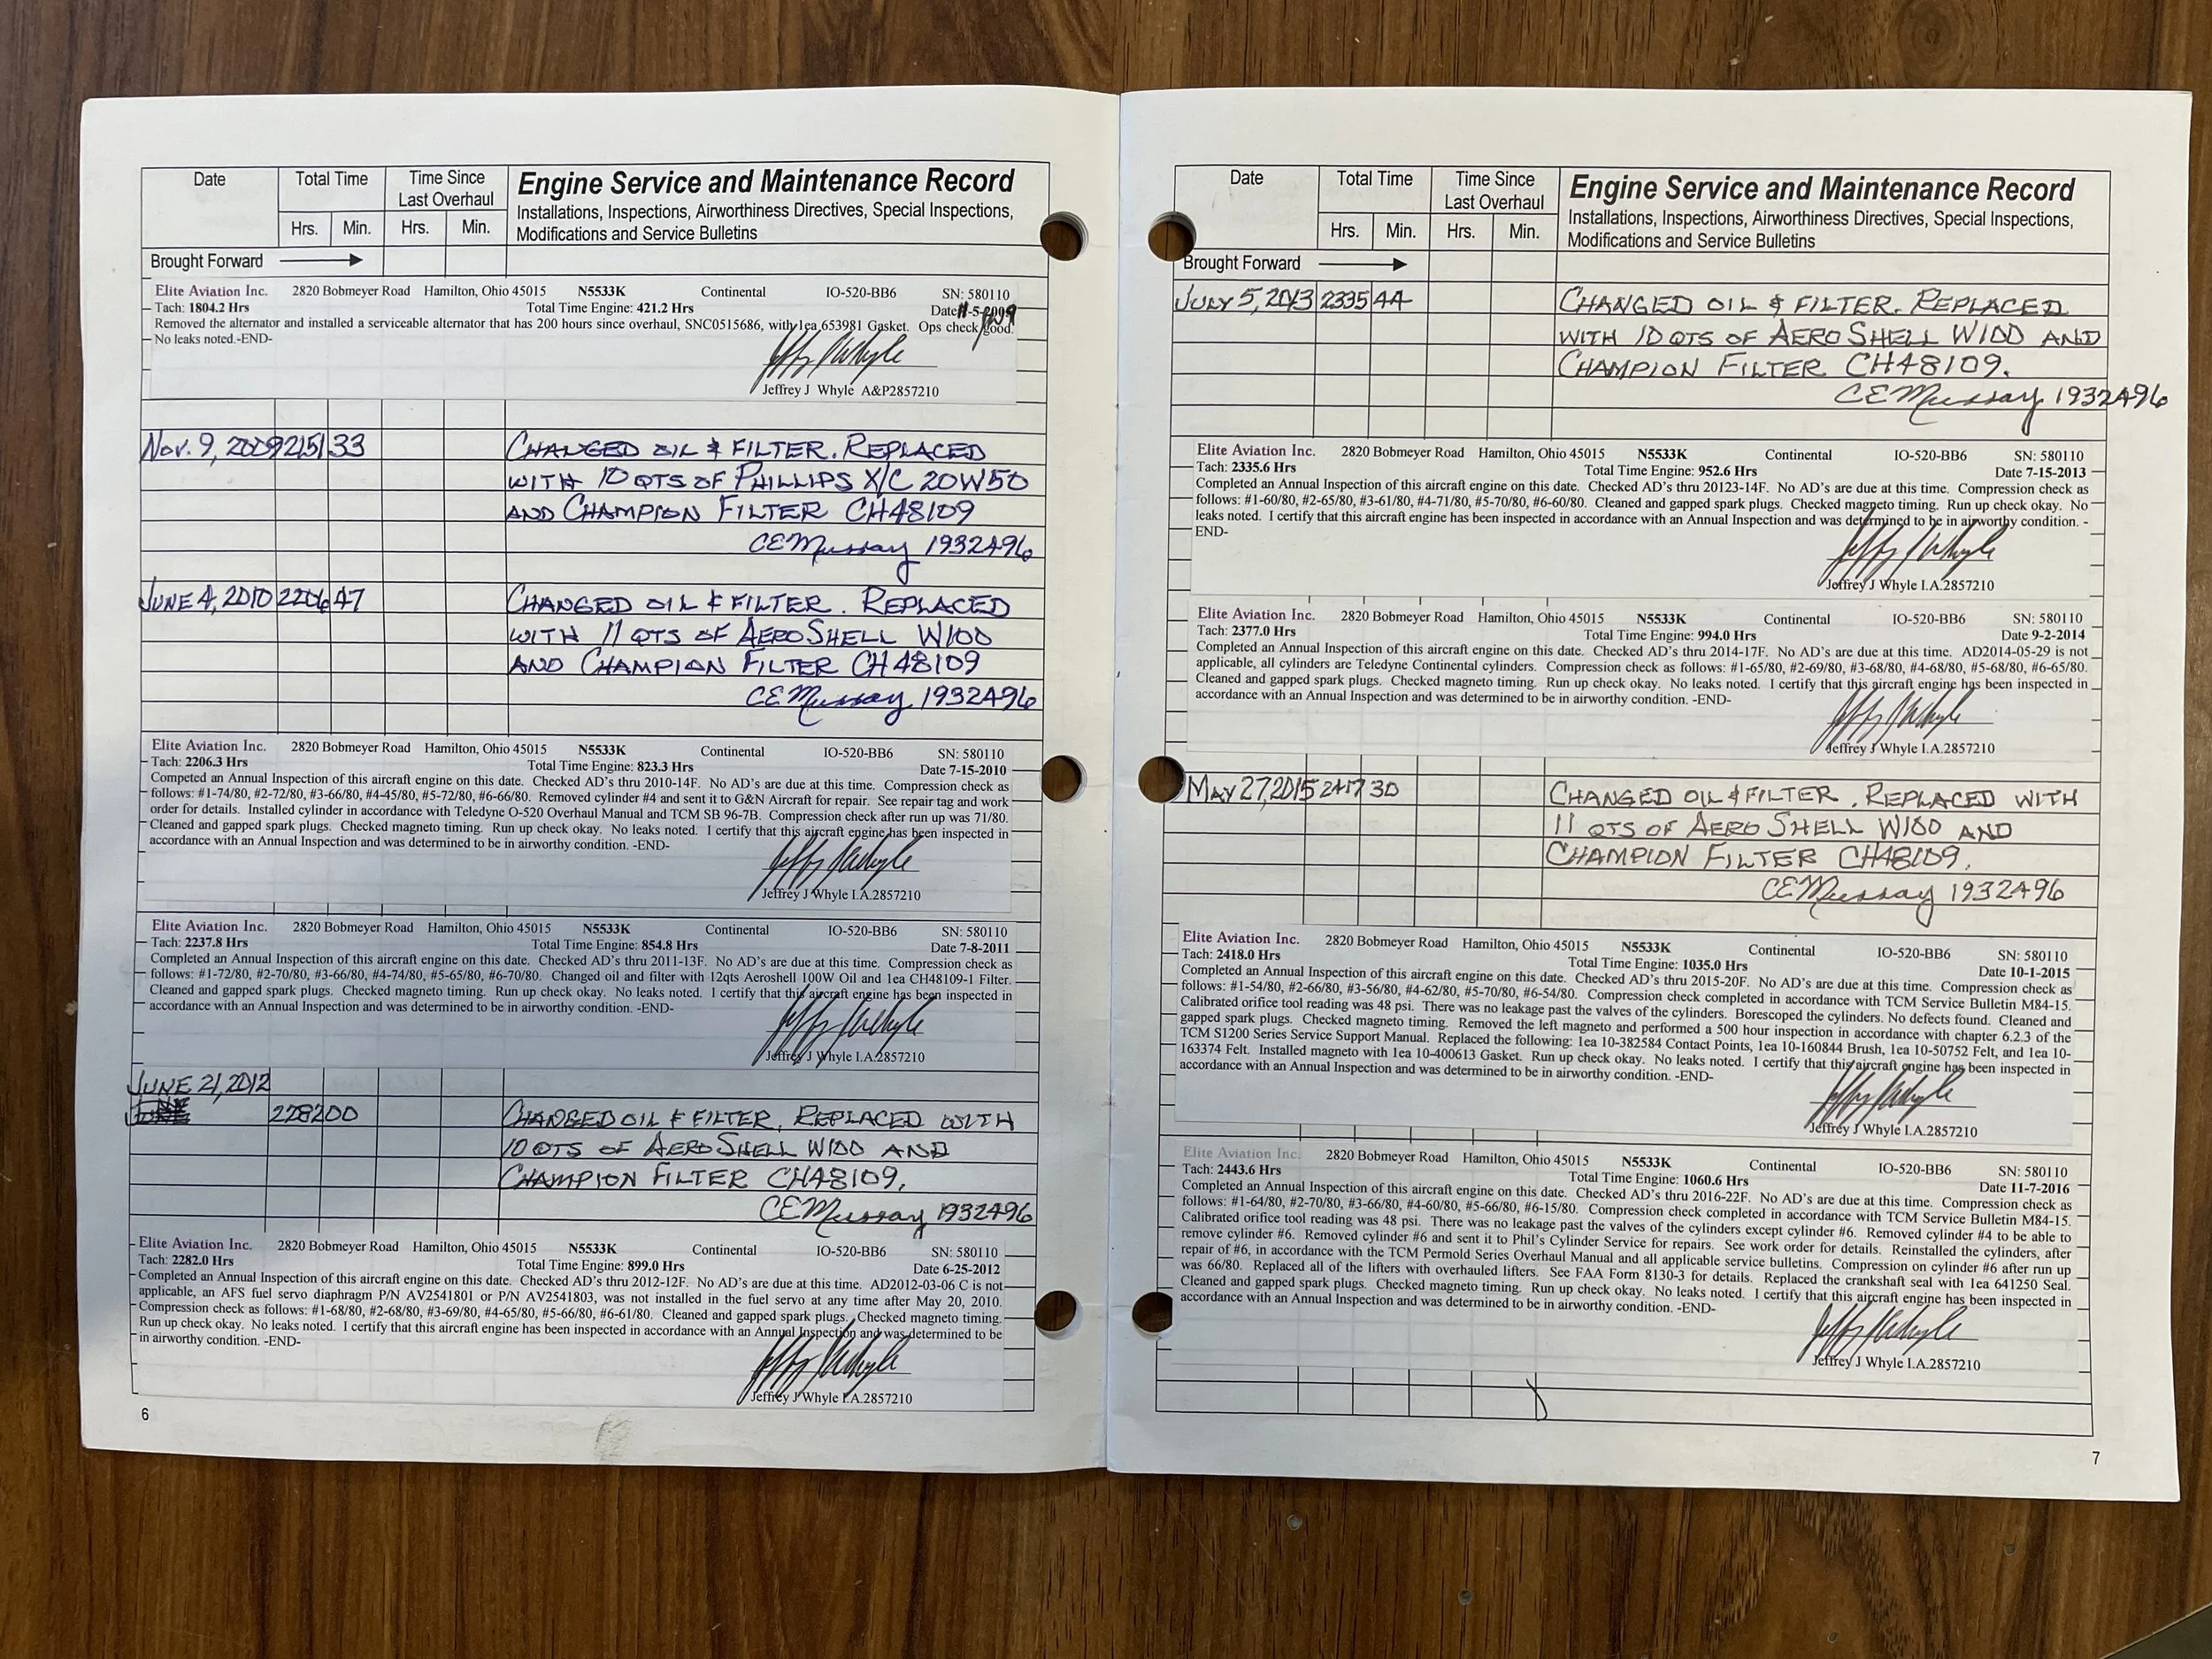 Date Total Time Time Since Last Overhaul Engine Service and Maintenance Record
Installations, Inspections, Airworthiness Directives, Special Inspections,
Hrs. Min. Hrs. Min. Modifications and Service Bulletins
Brought Forward
Elite Aviation Inc. 2820 Bobmeyer Road Hamilton, Ohio 45015 N5533K Continental IO-520-BB6 SN: 580110
Tach: 1804.2 Hrs Total Time Engine: 421.2 Hrs Date 11-5-2009
Removed the alternator and installed a serviceable alternator that has 200 hours since overhaul, SNC0515686, with 1ea 653981 Gasket. Ops check good.
No leaks noted.-END-
Jeffrey J Whyle A&P2857210
Nov. 9, 2009 2151 33 CHANGED OIL & FILTER. REPLACED
WITH 10 QTS OF PHILLIPS X/C 20W50
AND CHAMPION FILTER CH48109
CE Mussay 1932496
JUNE 4, 2010 2206 47 CHANGED OIL & FILTER. REPLACED
WITH 11 QTS OF AEROSHELL W100
AND CHAMPION FILTER CH48109
CE Mussay 1932496
Elite Aviation Inc. 2820 Bobmeyer Road Hamilton, Ohio 45015 N5533K Continental IO-520-BB6 SN: 580110
Tach: 2206.3 Hrs Total Time Engine: 823.3 Hrs Date 7-15-2010
Competed an Annual Inspection of this aircraft engine on this date. Checked AD's thru 2010-14F. No AD's are due at this time. Compression check as
follows: #1-74/80, #2-72/80, #3-66/80, #4-45/80, #5-72/80, #6-66/80. Removed cylinder #4 and sent it to G&N Aircraft for repair. See repair tag and work
order for details. Installed cylinder in accordance with Teledyne O-520 Overhaul Manual and TCM SB 96-7B. Compression check after run up was 71/80.
Cleaned and gapped spark plugs. Checked magneto timing. Run up check okay. No leaks noted. I certify that this aircraft engine has been inspected in
accordance with an Annual Inspection and was determined to be in airworthy condition. -END-
Jeffrey J Whyle I.A.2857210
Elite Aviation Inc. 2820 Bobmeyer Road Hamilton, Ohio 45015 N5533K Continental IO-520-BB6 SN: 580110
Tach: 2237.8 Hrs Total Time Engine: 854.8 Hrs Date 7-8-2011
Completed an Annual Inspection of this aircraft engine on this date. Checked AD's thru 2011-13F. No AD's are due at this time. Compression check as
follows: #1-72/80, #2-70/80, #3-66/80, #4-74/80, #5-65/80, #6-70/80. Changed oil and filter with 12qts Aeroshell 100W Oil and 1ea CH48109-1 Filter.
Cleaned and gapped spark plugs. Checked magneto timing. Run up check okay. No leaks noted. I certify that this aircraft engine has been inspected in
accordance with an Annual Inspection and was determined to be in airworthy condition. -END-
Jeffrey J Whyle I.A.2857210
JUNE 21, 2012
2282 00 CHANGED OIL & FILTER, REPLACED WITH
10 QTS OF AEROSHELL W100 AND
CHAMPION FILTER CH48109.
CE Mussay 1932496
Elite Aviation Inc. 2820 Bobmeyer Road Hamilton, Ohio 45015 N5533K Continental IO-520-BB6 SN: 580110
Tach: 2282.0 Hrs Total Time Engine: 899.0 Hrs Date 6-25-2012
Completed an Annual Inspection of this aircraft engine on this date. Checked AD's thru 2012-12F. No AD's are due at this time. AD2012-03-06 C is not
applicable, an AFS fuel servo diaphragm P/N AV2541801 or P/N AV2541803, was not installed in the fuel servo at any time after May 20, 2010.
Compression check as follows: #1-68/80, #2-68/80, #3-69/80, #4-65/80, #5-66/80, #6-61/80. Cleaned and gapped spark plugs. Checked magneto timing.
Run up check okay. No leaks noted. I certify that this aircraft engine has been inspected in accordance with an Annual Inspection and was determined to be
in airworthy condition. -END-
Jeffrey J Whyle I.A.2857210
6
Date Total Time Time Since Last Overhaul Engine Service and Maintenance Record
Installations, Inspections, Airworthiness Directives, Special Inspections,
Hrs. Min. Hrs. Min. Modifications and Service Bulletins
Brought Forward
JULY 5, 2013 2335 44 CHANGED OIL & FILTER. REPLACED
WITH 10 QTS OF AEROSHELL W100 AND
CHAMPION FILTER CH48109.
CE Mussay 1932496
Elite Aviation Inc. 2820 Bobmeyer Road Hamilton, Ohio 45015 N5533K Continental IO-520-BB6 SN: 580110
Tach: 2335.6 Hrs Total Time Engine: 952.6 Hrs Date 7-15-2013
Completed an Annual Inspection of this aircraft engine on this date. Checked AD's thru 20123-14F. No AD's are due at this time. Compression check as
follows: #1-60/80, #2-65/80, #3-61/80, #4-71/80, #5-70/80, #6-60/80. Cleaned and gapped spark plugs. Checked magneto timing. Run up check okay. No
leaks noted. I certify that this aircraft engine has been inspected in accordance with an Annual Inspection and was determined to be in airworthy condition. -
END-
Jeffrey J Whyle I.A.2857210
Elite Aviation Inc. 2820 Bobmeyer Road Hamilton, Ohio 45015 N5533K Continental IO-520-BB6 SN: 580110
Tach: 2377.0 Hrs Total Time Engine: 994.0 Hrs Date 9-2-2014
Completed an Annual Inspection of this aircraft engine on this date. Checked AD's thru 2014-17F. No AD's are due at this time. AD2014-05-29 is not
applicable, all cylinders are Teledyne Continental cylinders. Compression check as follows: #1-65/80, #2-69/80, #3-68/80, #4-68/80, #5-68/80, #6-65/80.
Cleaned and gapped spark plugs. Checked magneto timing. Run up check okay. No leaks noted. I certify that this aircraft engine has been inspected in
accordance with an Annual Inspection and was determined to be in airworthy condition. -END-
Jeffrey J Whyle I.A.2857210
MAY 27, 2015 2417 30 CHANGED OIL & FILTER. REPLACED WITH
11 QTS OF AEROSHELL W100 AND
CHAMPION FILTER CH48109.
CE Mussay 1932496
Elite Aviation Inc. 2820 Bobmeyer Road Hamilton, Ohio 45015 N5533K Continental IO-520-BB6 SN: 580110
Tach: 2418.0 Hrs Total Time Engine: 1035.0 Hrs Date 10-1-2015
Completed an Annual Inspection of this aircraft engine on this date. Checked AD's thru 2015-20F. No AD's are due at this time. Compression check as
follows: #1-54/80, #2-66/80, #3-56/80, #4-62/80, #5-70/80, #6-54/80. Compression check completed in accordance with TCM Service Bulletin M84-15.
Calibrated orifice tool reading was 48 psi. There was no leakage past the valves of the cylinders. Borescoped the cylinders. No defects found. Cleaned and
gapped spark plugs. Checked magneto timing. Removed the left magneto and performed a 500 hour inspection in accordance with chapter 6.2.3 of the
TCM S1200 Series Service Support Manual. Replaced the following: 1ea 10-382584 Contact Points, 1ea 10-160844 Brush, 1ea 10-50752 Felt, and 1ea 10-
163374 Felt. Installed magneto with 1ea 10-400613 Gasket. Run up check okay. No leaks noted. I certify that this aircraft engine has been inspected in
accordance with an Annual Inspection and was determined to be in airworthy condition. -END-
Jeffrey J Whyle I.A.2857210
Elite Aviation Inc. 2820 Bobmeyer Road Hamilton, Ohio 45015 N5533K Continental IO-520-BB6 SN: 580110
Tach: 2443.6 Hrs Total Time Engine: 1060.6 Hrs Date 11-7-2016
Completed an Annual Inspection of this aircraft engine on this date. Checked AD's thru 2016-22F. No AD's are due at this time. Compression check as
follows: #1-64/80, #2-70/80, #3-66/80, #4-60/80, #5-66/80, #6-15/80. Compression check completed in accordance with TCM Service Bulletin M84-15.
Calibrated orifice tool reading was 48 psi. There was no leakage past the valves of the cylinders except cylinder #6. Removed cylinder #4 to be able to
remove cylinder #6. Removed cylinder #6 and sent it to Phil's Cylinder Service for repairs. See work order for details. Reinstalled the cylinders, after
repair of #6, in accordance with the TCM Permold Series Overhaul Manual and all applicable service bulletins. Compression on cylinder #6 after run up
was 66/80. Replaced all of the lifters with overhauled lifters. See FAA Form 8130-3 for details. Replaced the crankshaft seal with 1ea 641250 Seal.
Cleaned and gapped spark plugs. Checked magneto timing. Run up check okay. No leaks noted. I certify that this aircraft engine has been inspected in
accordance with an Annual Inspection and was determined to be in airworthy condition. -END-
Jeffrey J Whyle I.A.2857210
7